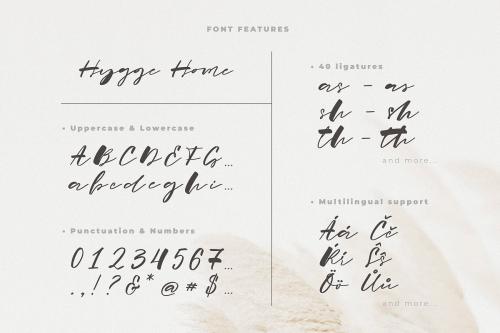 FONT FEATURES
Hygge Home
• Uppercase & Lowercase
ABCDEFG...
abcdeghi...
• Punctuation & Numbers
01234567...
.,!?&*@#$...
• 40 ligatures
as - as
sh - sh
th - th
and more...
• Multilingual support
Áá Čč
Ŕŕ Ŝŝ
Öö Ůů
and more...